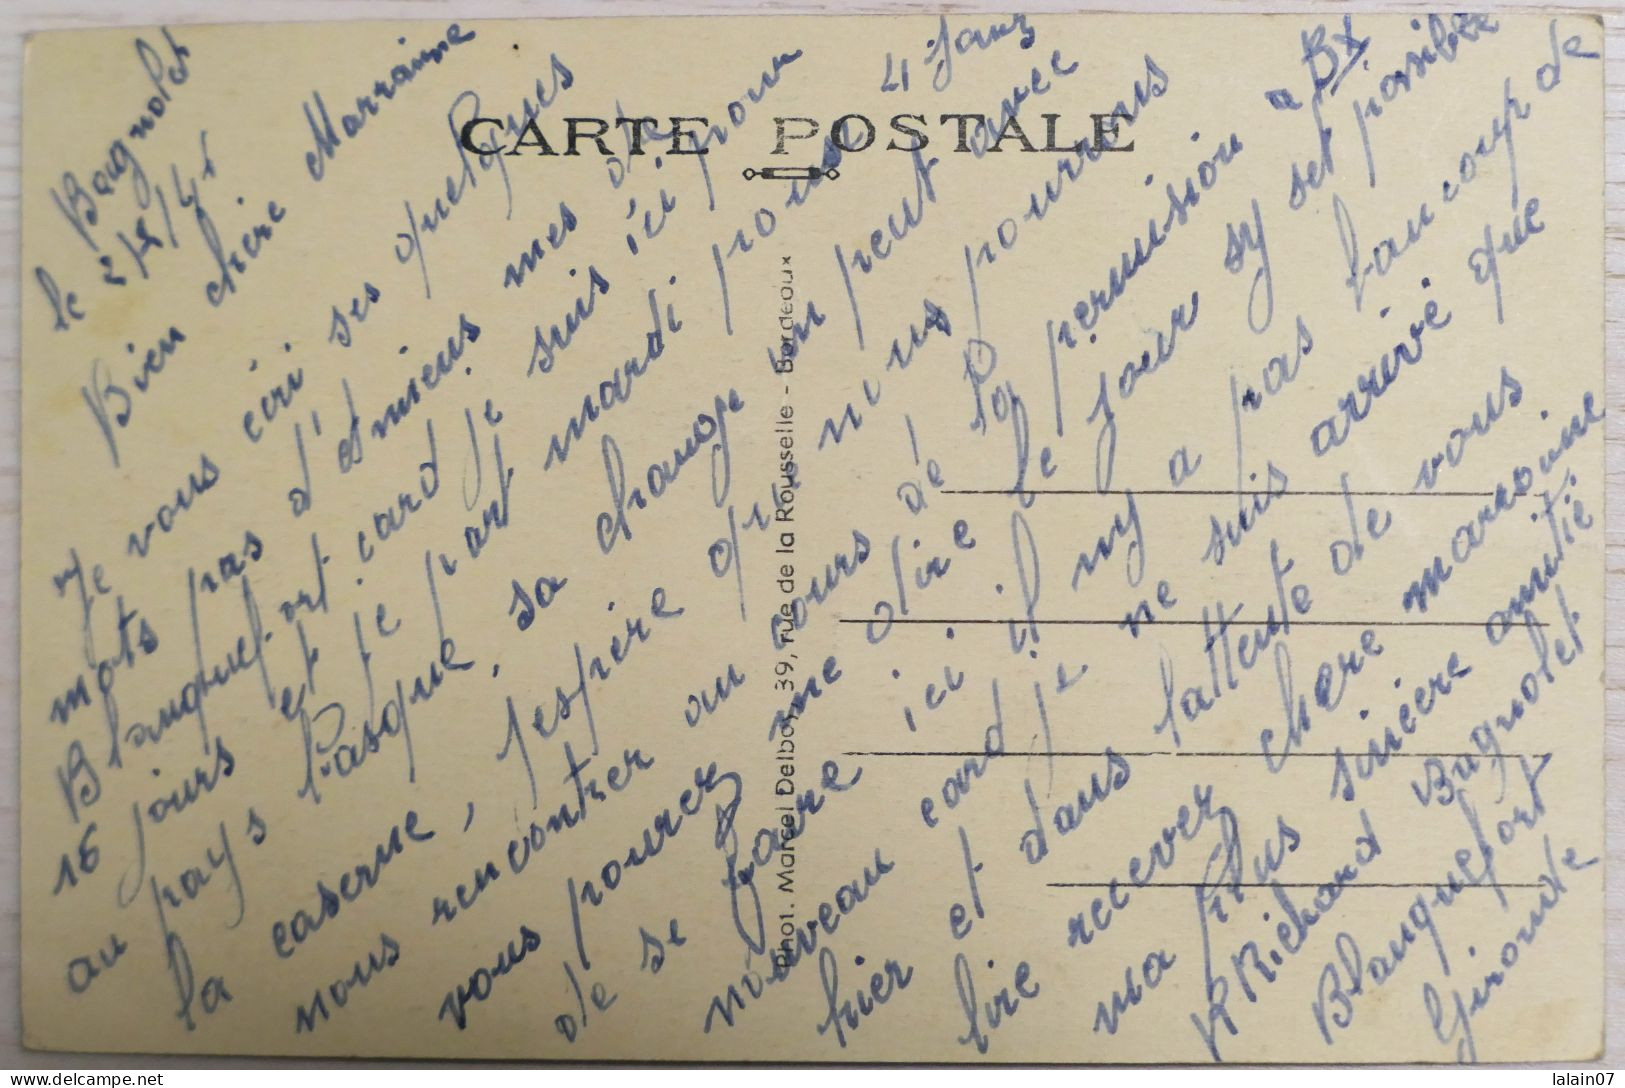 CARTE POSTALE
Phot. Marcel Delboy, 39, rue de la Rousselle - Bordeaux
Bagnolet
le
Bien chère Marraine
Je vous écri ses quelques
mots pas d'
Blanquefort card je suis ici pour
15 jours et je part mardi pour 4 jours
au pays Pasque, sa change un peut avec
la caserne, jespère que nous pourrons
nous rencontrer au cours de la permision a Bx
vous pourez me dire le jour sy set possible
de se faire ici il ny a pas baucoup de
nouveau card je ne suis arrivé que
hier et dans lattente de vous
lire recever chere marraine
ma plus sincère amitié
R Richard Bagnolet
Blanquefort
Gironde
lalain07